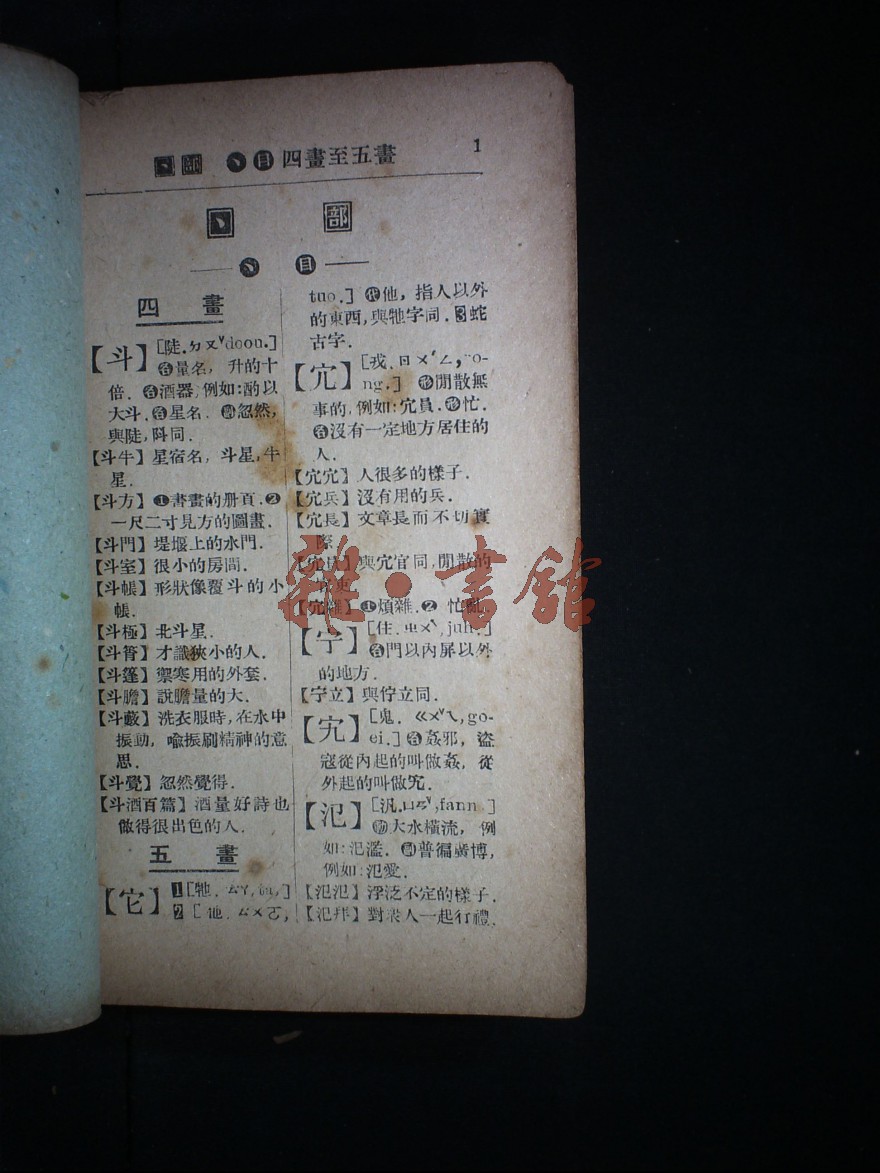 丶部 丶目四畫至五畫 1
丶 部
丶 目
四 畫
【斗】[陡.ㄉㄡˇdoou.]
名量名,升的十
倍.名酒器,例如:酌以
大斗.名星名.副忽然,
與陡,阧同.
【斗牛】星宿名,斗星,牛
星.
【斗方】❶書畫的册頁.❷
一尺二寸見方的圖畫.
【斗門】堤堰上的水門.
【斗室】很小的房間.
【斗帳】形狀像覆斗的小
帳.
【斗極】北斗星.
【斗筲】才識狹小的人.
【斗篷】禦寒用的外套.
【斗膽】說膽量的大.
【斗藪】洗衣服時,在水中
振動,喩振刷精神的意
思.
【斗覺】忽然覺得.
【斗酒百篇】酒量好詩也
做得很出色的人.
五 畫
【它】1[牠.ㄊㄚ,ta,]
2[他.ㄊㄨㄛ,
tuo.]代他,指人以外
的東西,與牠字同.3蛇
古字.
【宂】[戎.ㄖㄨˊㄥ,ro-
ng.]形閒散無
事的,例如:宂員.形忙.
名沒有一定地方居住的
人.
【宂宂】人很多的樣子.
【宂兵】沒有用的兵.
【宂長】文章長而不切實
際.
【宂員】與宂官同,閒散的
【宂雜】❶煩雜.❷忙亂.
【宁】[住.ㄓㄨˋ,juh.]
名門以內屏以外
的地方.
【宁立】與佇立同.
【宄】[鬼.ㄍㄨˇㄟ,go-
ei.]名姦邪,盜
寇從內起的叫做姦,從
外起的叫做宄.
【氾】[汎.ㄈㄢˋ,fann.]
動大水橫流,例
如:氾濫.副普徧廣博,
例如:氾愛.
【氾氾】浮泛不定的樣子.
【氾拜】對衆人一起行禮.
雜·書舘